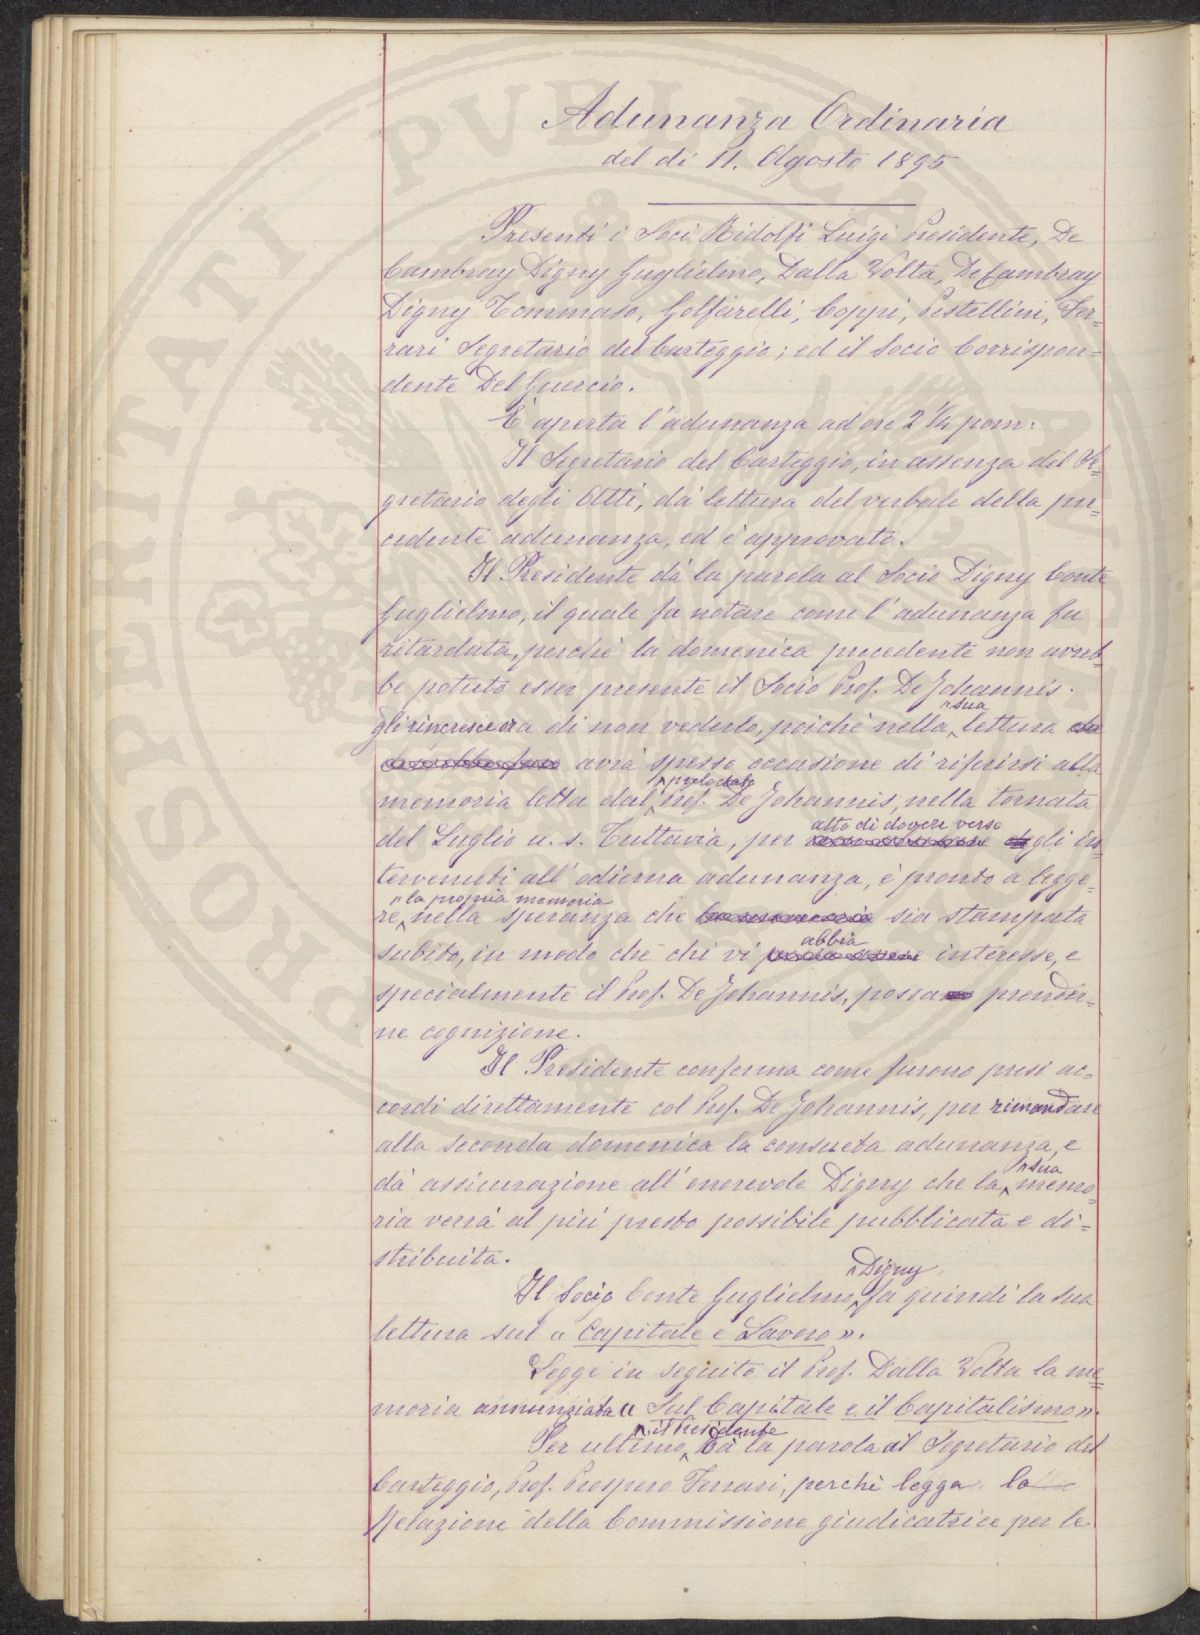 Adunanza Ordinaria
del dì 11. Agosto 1895
Presenti i Soci Ridolfi Luigi Presidente, De
Cambray Digny Guglielmo, Dalla Volta, De Cambray
Digny Tommaso, Golfarelli, Coppi, Pestellini, Fer=
rari Segretario del Carteggio; ed il Socio Corrispon=
dente Del Guercio.
E' aperta l'adunanza ad ore 2 1/4 pom:
Il Segretario del Carteggio, in assenza del Se=
gretario degli Atti, dà lettura del verbale della pre=
cedente adunanza, ed è approvato.
Il Presidente dà la parola al Socio Digny Conte
Guglielmo, il quale fa notare come l'adunanza fu
ritardata, perchè la domenica precedente non avreb=
be potuto esser presente il Socio Prof. De Johannis.
sua
gli rincresce ora di non vederlo, poichè nella lettura
avrà spesso occasione di riferirsi alla
prelodato
memoria letta dal Prof. De Johannis, nella tornata
atto di dovere verso
del Luglio u. s. Tuttavia, per gli in=
tervenuti all'odierna adunanza, è pronto a legge=
la propria memoria
re, nella speranza che sia stampata
abbia
subito, in modo che chi vi interesse, e
specialmente il Prof. De Johannis, possa prender=
ne cognizione.
Il Presidente conferma come furono presi ac=
cordi direttamente col Prof. De Johannis, per rimandare
alla seconda domenica la consueta adunanza, e
sua
dà assicurazione all'onorevole Digny che la memo=
ria verrà al più presto possibile pubblicata e di=
stribuita.
Digny
Il Socio Conte Guglielmo fa quindi la sua
lettura sul « Capitale e Lavoro ».
Legge in seguito il Prof. Dalla Volta la me=
moria annunziata « Sul Capitale e il Capitalismo ».
il Presidente
Per ultimo, dà la parola al Segretario del
Carteggio, Prof. Prospero Ferrari, perchè legga la
Relazione della Commissione giudicatrice per le
PROSPERITATI PUBLICAE